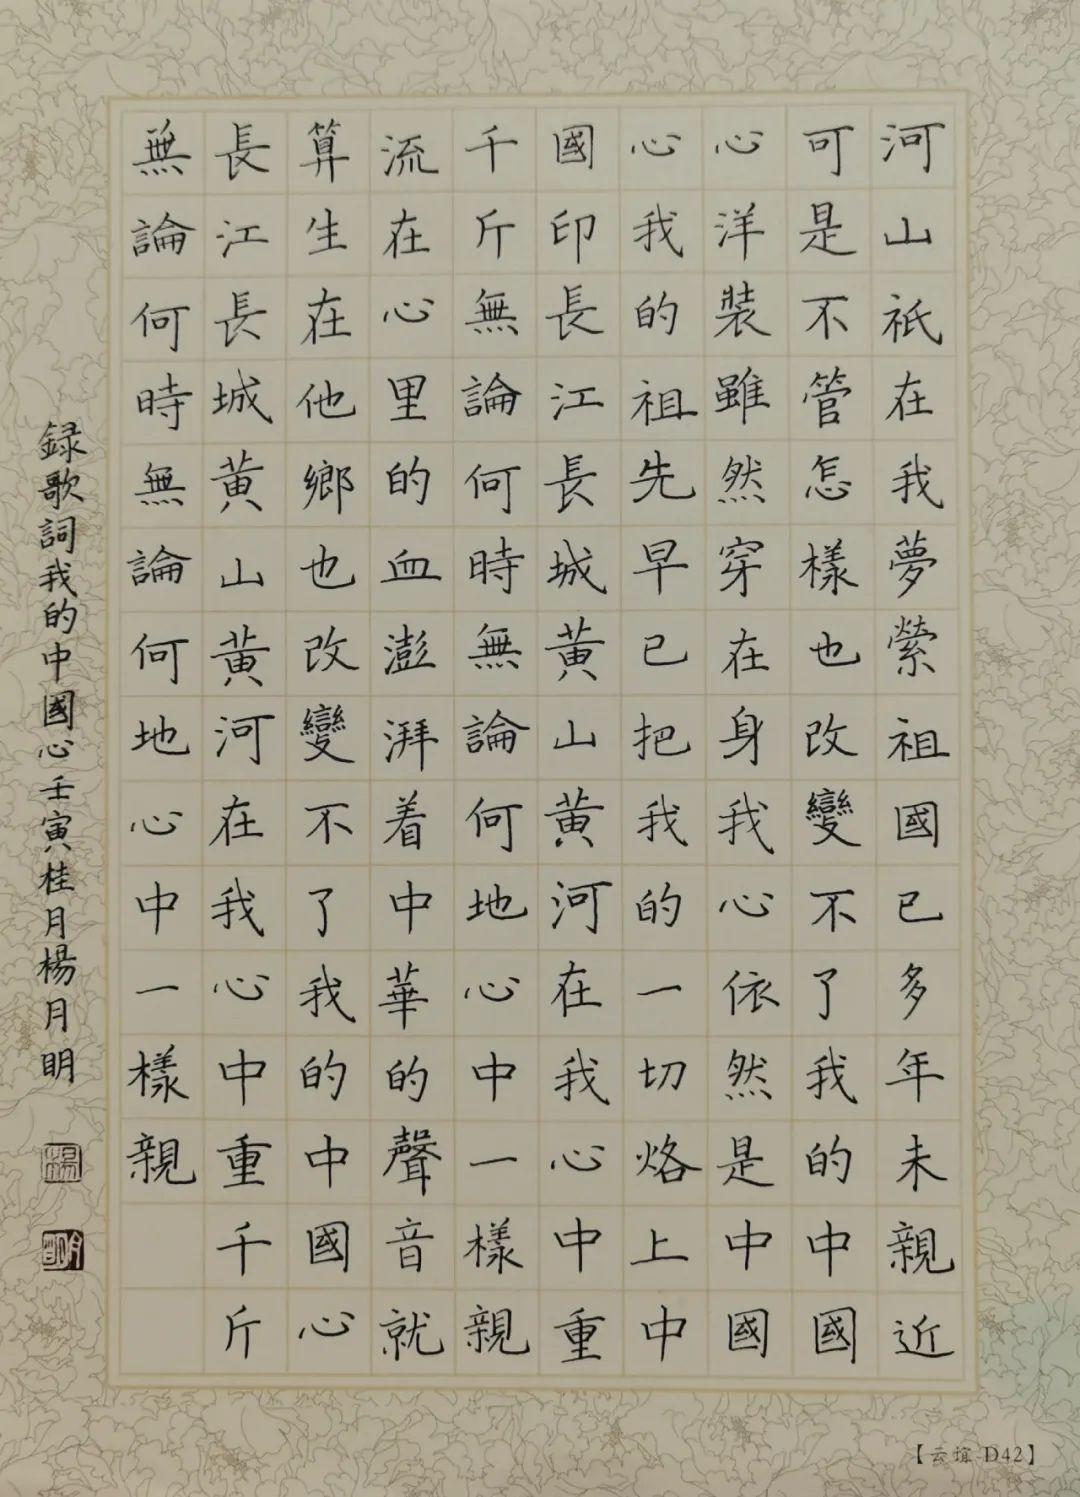 河山祇在我夢縈祖國已多年未親近
可是不管怎樣也改變不了我的中國
心洋裝雖然穿在身我心依然是中國
心我的祖先早已把我的一切烙上中
國印長江長城黃山黃河在我心中重
千斤無論何時無論何地心中一樣親
流在心里的血澎湃着中華的聲音就
算生在他鄉也改變不了我的中國心
長江長城黃山黃河在我心中重千斤
無論何時無論何地心中一樣親
録歌詞我的中國心壬寅桂月楊月明
楊
月明
【云 D42】